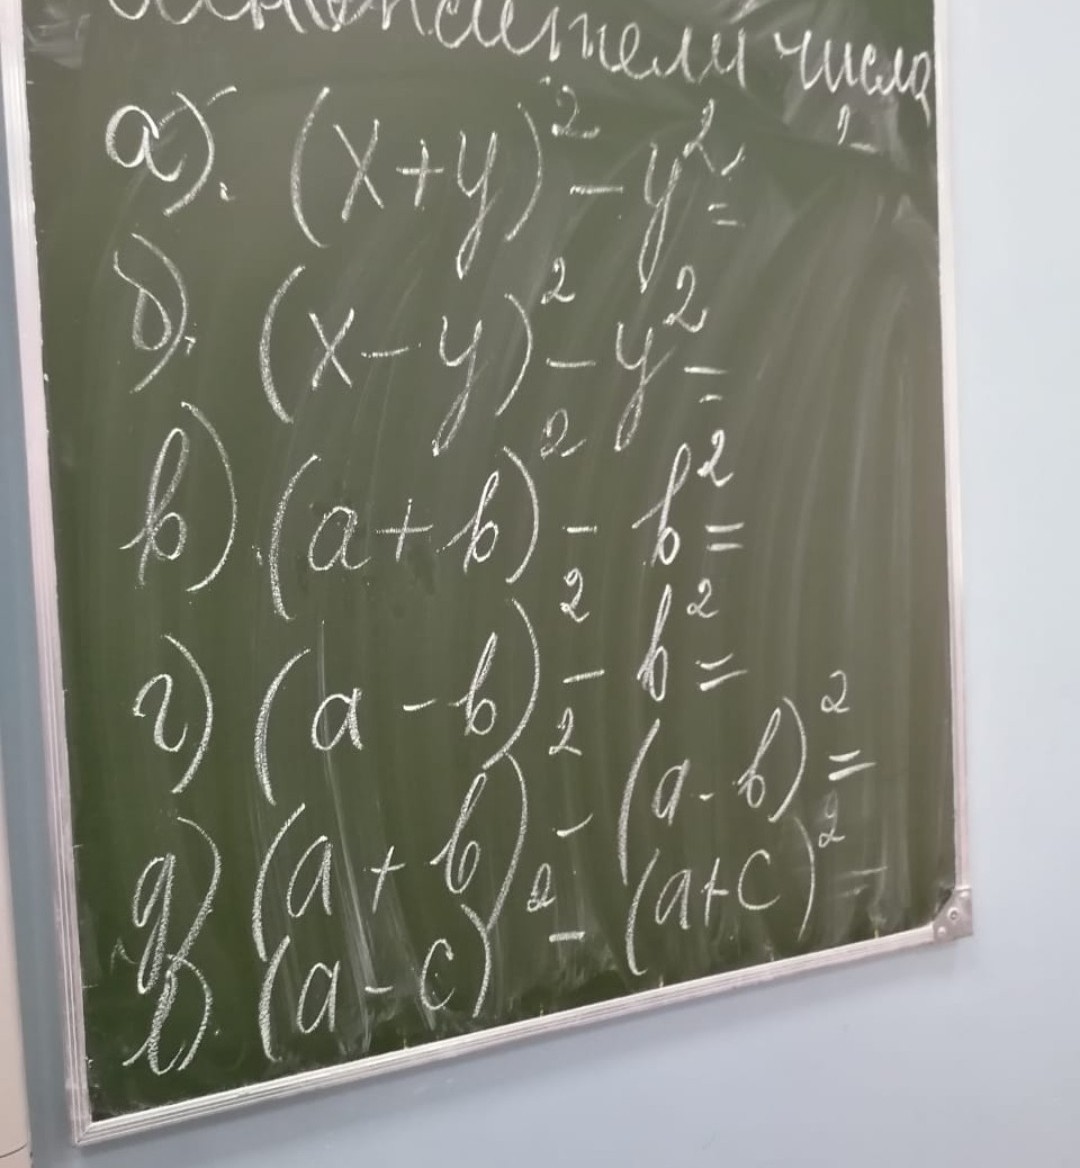 числа
а). (x+y)² - y² =
б). (x-y)² - y² =
в) (a+b)² - b² =
г) (a-b)² - b² =
д) (a+b)² - (a-b)² =
е) (a-c)² - (a+c)² =